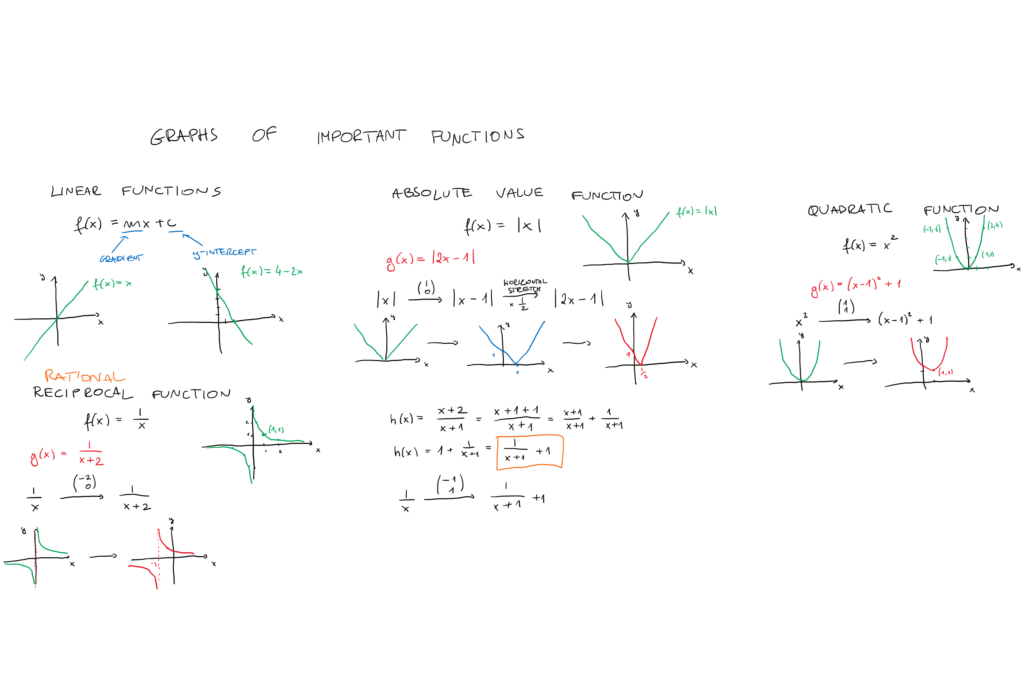 GRAPHS OF IMPORTANT FUNCTIONS
LINEAR FUNCTIONS
f(x) = mx + c
GRADIENT
y-INTERCEPT
y
f(x) = x
x
y
f(x) = 4 - 2x
x
RATIONAL
RECIPROCAL FUNCTION
f(x) = 1/x
y
2
1
(1,1)
1 2
x
g(x) = 1/(x+2)
1/x (-2 0) → 1/(x+2)
y
x
y
-2
x
ABSOLUTE VALUE FUNCTION
f(x) = |x|
y
f(x) = |x|
x
g(x) = |2x - 1|
|x| (1 0) → |x - 1| HORIZONTAL STRETCH × 1/2 → |2x - 1|
y
x
y
1
1
x
y
1
1/2
x
h(x) = (x+2)/(x+1) = (x+1+1)/(x+1) = (x+1)/(x+1) + 1/(x+1)
h(x) = 1 + 1/(x+1) = 1/(x+1) + 1
1/x (-1 1) → 1/(x+1) + 1
QUADRATIC FUNCTION
f(x) = x²
y
(2,4)
(-1,1)
(1,1)
x
g(x) = (x-1)² + 1
x² (1 1) → (x-1)² + 1
y
x
y
(1,1)
x